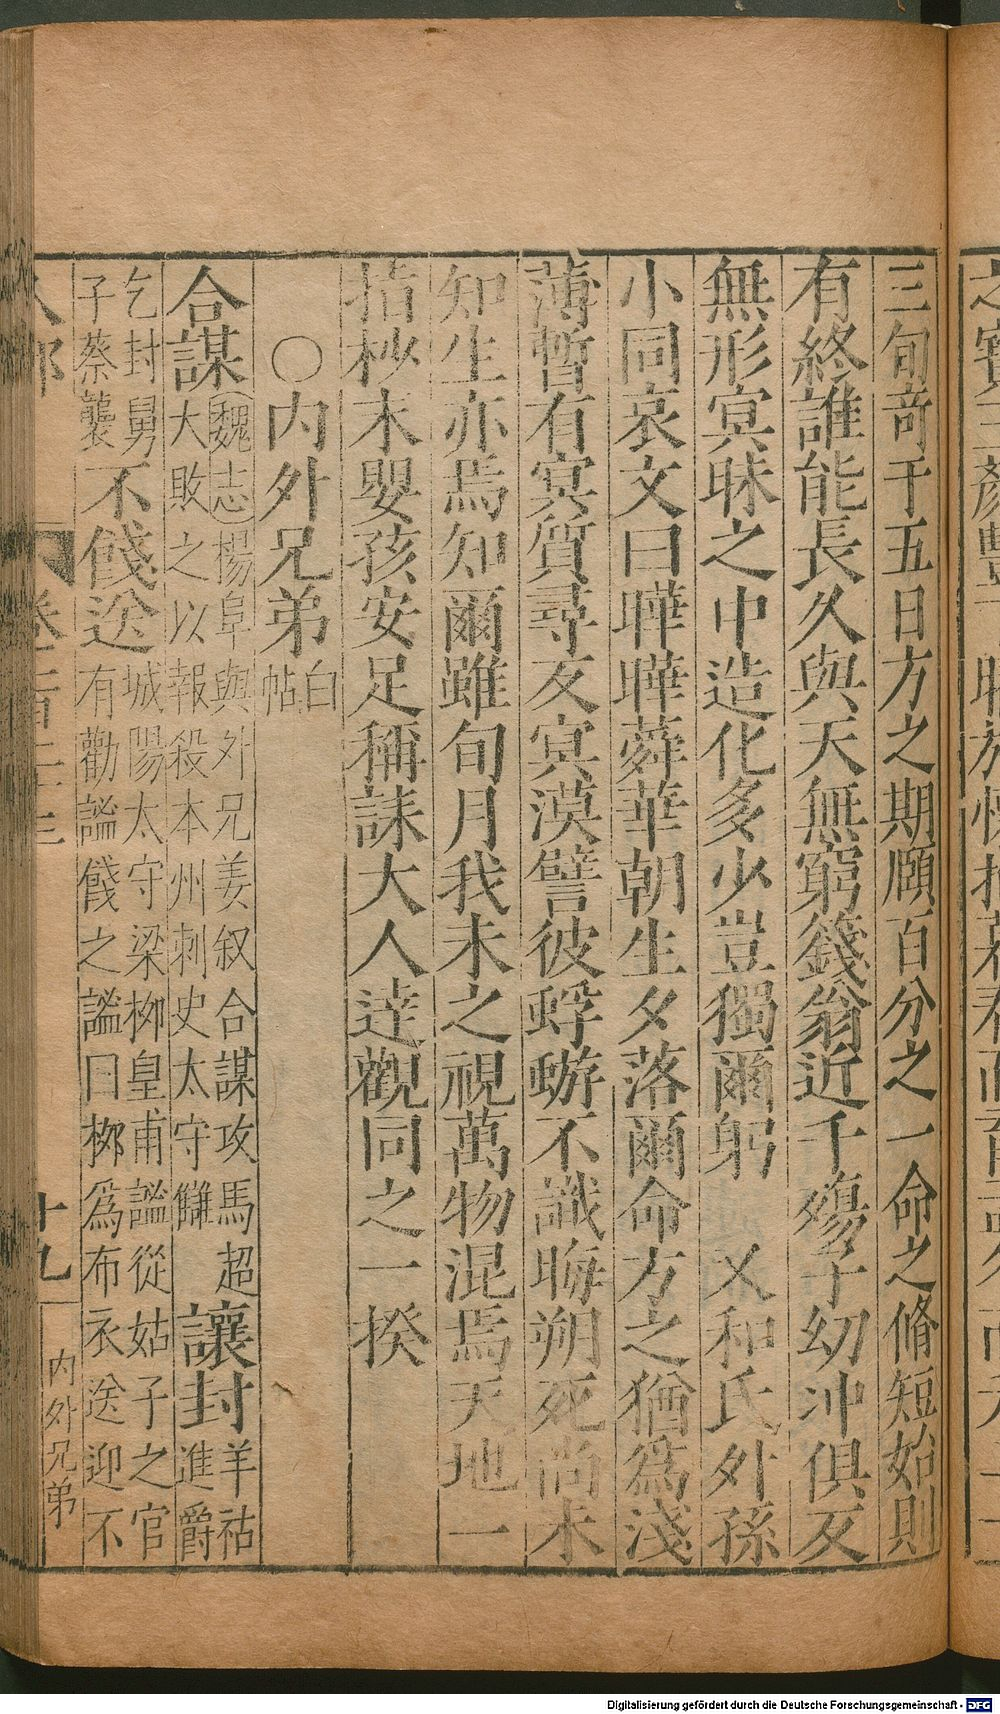 三旬竒于五日方之期頤百分之一命之脩短始則
有終誰能長久與天無窮籛翁近千殤子幼沖俱反
無形㝠昧之中造化多少豈獨爾躬　又和氏外孫
小同哀文曰曄曄蕣華朝生夕落爾命方之猶爲淺
薄暫有㝠質尋反㝠漠譬彼蜉蝣不識晦朔死尚未
知生亦焉知爾雖旬月我未之視萬物混焉天地一
指杪末嬰孩安足稱誄大人達觀同之一揆
○内外兄弟白帖
合謀魏志楊阜與外兄姜叙合謀攻馬超大敗之以報殺本州刺史太守讎　讓封羊祜進爵
乞封舅子蔡襲　不餞送城陽太守梁柳皇甫謐從姑子之官有勸謐餞之謐曰栁爲布衣送迎不
人部　卷二百五十三　十九　内外兄弟
Digitalisierung gefördert durch die Deutsche Forschungsgemeinschaft - DFG